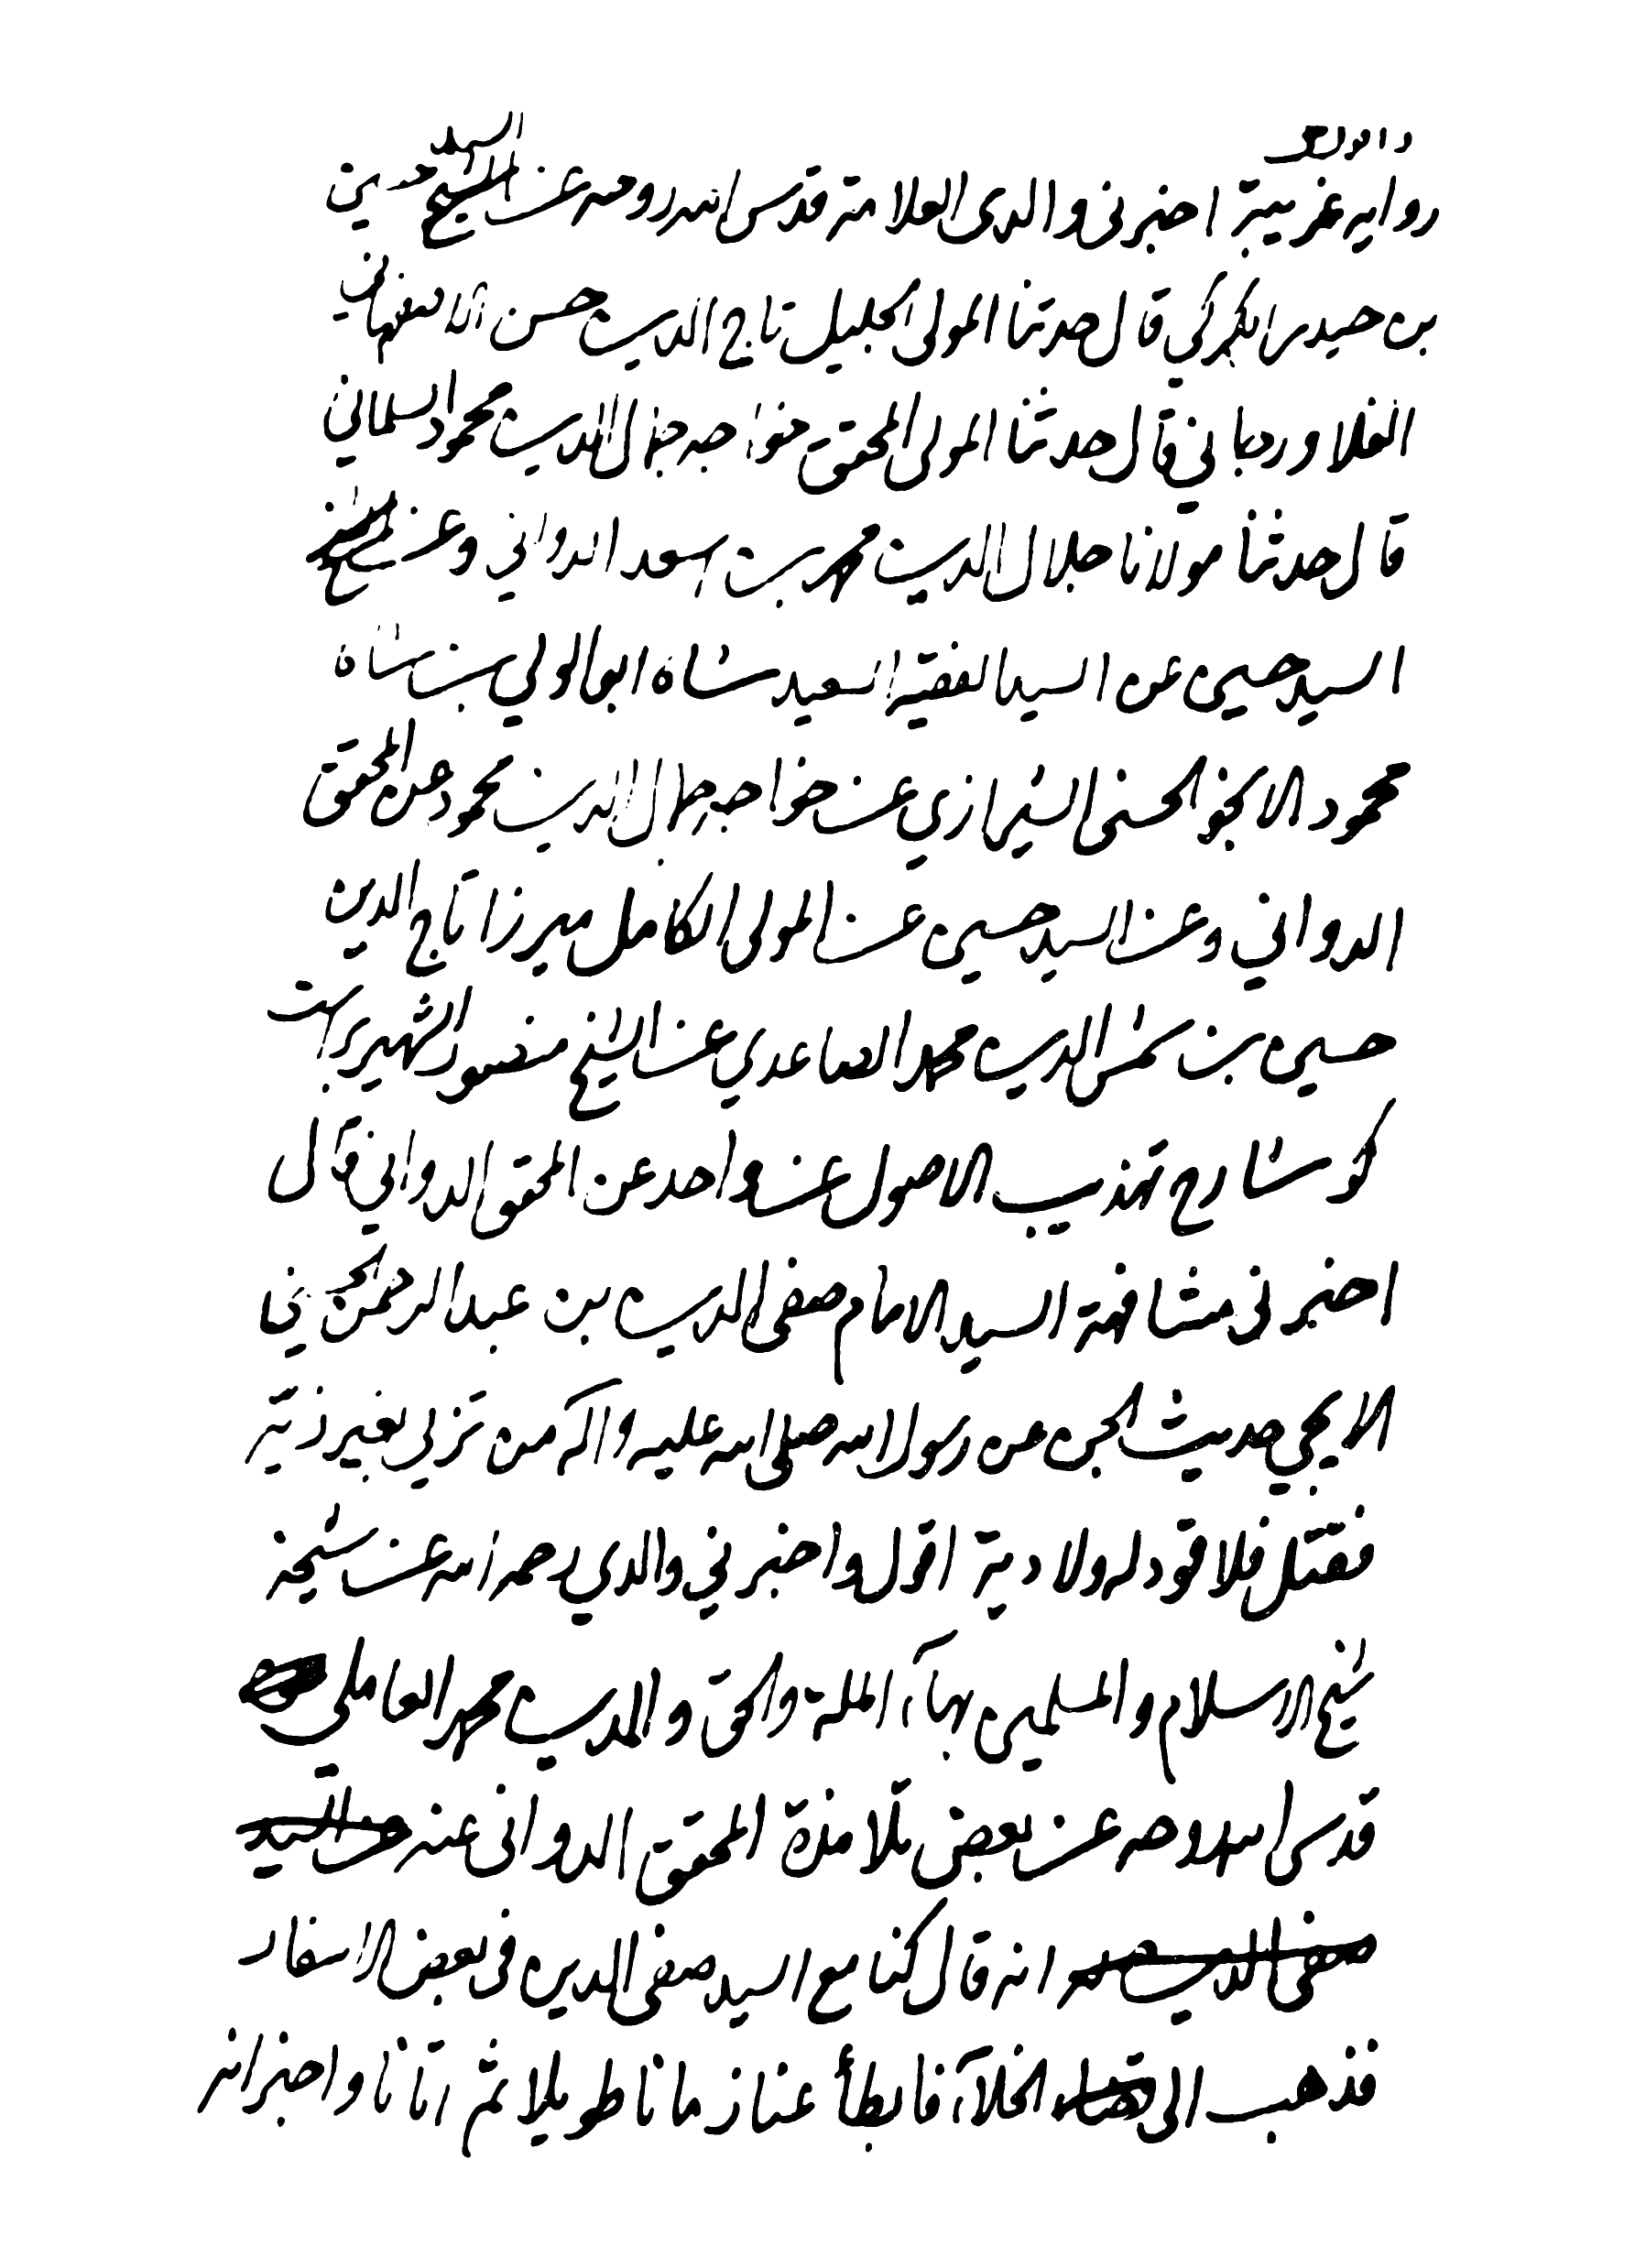 رواية غريبة اخبرني والدى العلامة قدس الله روحه عن السيد حسين
بن حيدر الكركي قال حدثنا المولى الجليل تاج الدين حسن الاصفهاني
الفلاورجاني قال حدثنا المولى المحقق خواجه جمال الدين محمود السلماني
قال حدثنا مولانا جلال الدين محمد بن اسعد الدواني وعن
السيد حسين عن السيد الفقيه السعيد شاه ابو الولي بن شاه
محمود الانجو الحسني الشيرازي عن خواجه جمال الدين محمود عن المحقق
الدواني وعن السيد حسين عن المولى الكامل ميرزا تاج الدين
حسين بن شمس الدين محمد الصاعدي عن الشيخ منصور الشهير براست
كو شارح تهذيب الاصول عن واحد عن المحقق الدواني قال
اخبرني مشافهة السيد الامام صفى الدين بن عبد الرحمن الحسيني
الايجي حديث الجن عن رسول الله صلى الله عليه واله من تزيى بغير زيّه
فقتل فلا قود له ولا دية اقول واخبرني والدي رحمه الله عن شيخه
شيخ الاسلام والمسلمين بهآء الملة والحق والدين محمد العاملي
قدس الله روحه عن بعض تلامذة المحقق الدوانى عنه عن السيد
صفى الدين انه قال كنا مع السيد صفى الدين فى بعض الاسفار
فذهب الى قضاء الخلآء فابطأ عنا زمانا طويلا ثم اتانا واخبر انه